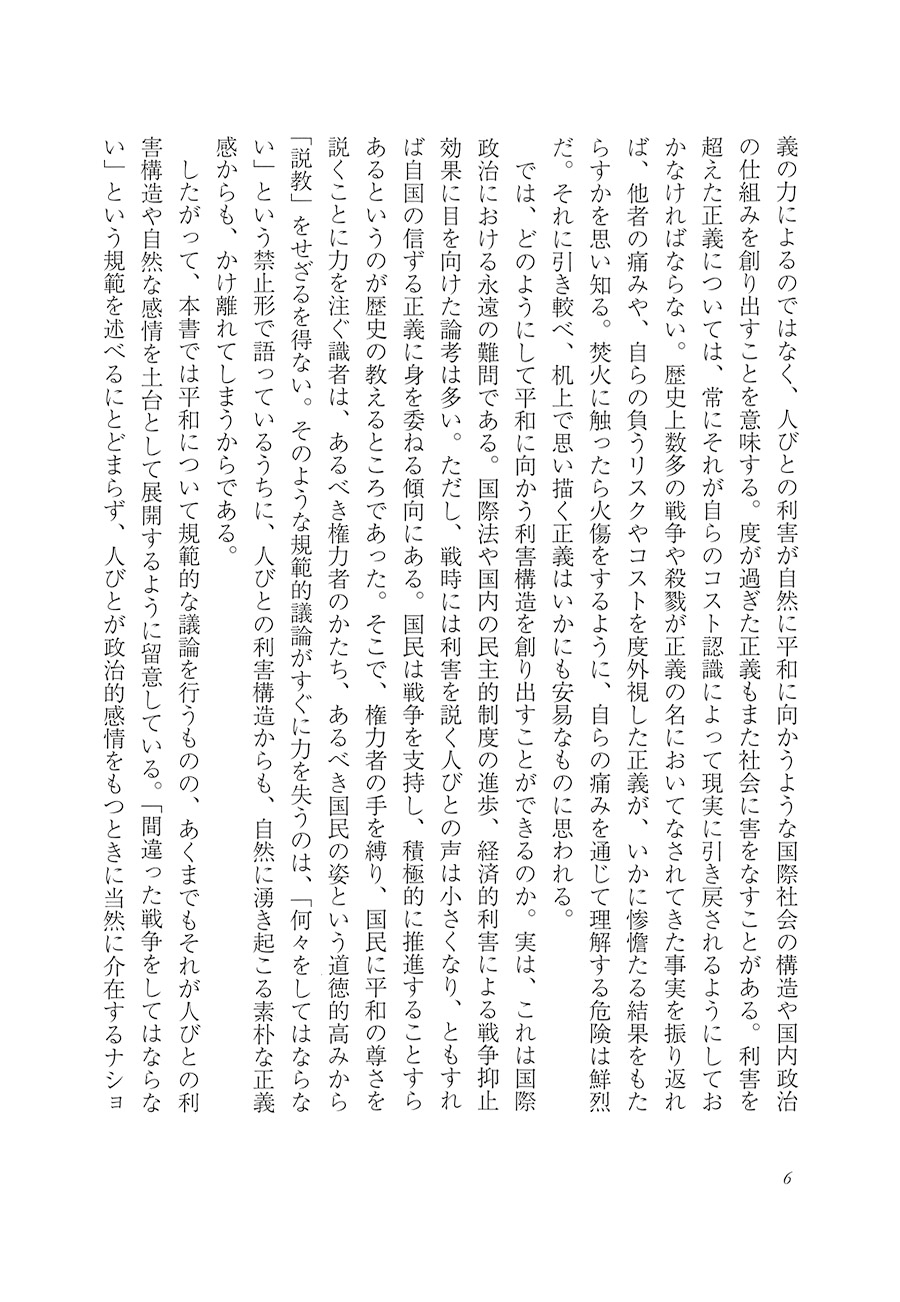 義の力によるのではなく、人びとの利害が自然に平和に向かうような国際社会の構造や国内政治
の仕組みを創り出すことを意味する。度が過ぎた正義もまた社会に害をなすことがある。利害を
超えた正義については、常にそれが自らのコスト認識によって現実に引き戻されるようにしてお
かなければならない。歴史上数多の戦争や殺戮が正義の名においてなされてきた事実を振り返れ
ば、他者の痛みや、自らの負うリスクやコストを度外視した正義が、いかに惨憺たる結果をもた
らすかを思い知る。焚火に触ったら火傷をするように、自らの痛みを通じて理解する危険は鮮烈
だ。それに引き較べ、机上で思い描く正義はいかにも安易なものに思われる。
では、どのようにして平和に向かう利害構造を創り出すことができるのか。実は、これは国際
政治における永遠の難問である。国際法や国内の民主的制度の進歩、経済的利害による戦争抑止
効果に目を向けた論考は多い。ただし、戦時には利害を説く人びとの声は小さくなり、ともすれ
ば自国の信ずる正義に身を委ねる傾向にある。国民は戦争を支持し、積極的に推進することすら
あるというのが歴史の教えるところであった。そこで、権力者の手を縛り、国民に平和の尊さを
説くことに力を注ぐ識者は、あるべき権力者のかたち、あるべき国民の姿という道徳的高みから
「説教」をせざるを得ない。そのような規範的議論がすぐに力を失うのは、「何々をしてはならな
い」という禁止形で語っているうちに、人びとの利害構造からも、自然に湧き起こる素朴な正義
感からも、かけ離れてしまうからである。
したがって、本書では平和について規範的な議論を行うものの、あくまでもそれが人びとの利
害構造や自然な感情を土台として展開するように留意している。「間違った戦争をしてはならな
い」という規範を述べるにとどまらず、人びとが政治的感情をもつときに当然に介在するナショ
6